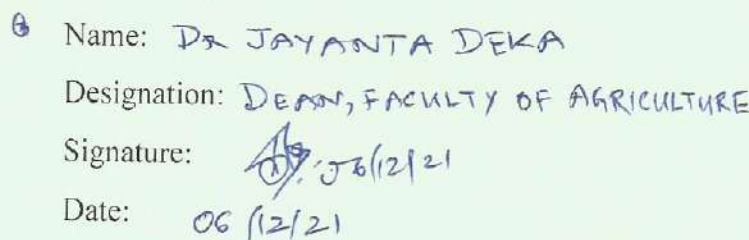 Name: DR JAYANTA DEKA
Designation: DEAN, FACULTY OF AGRICULTURE
Signature: 06/12/21
Date: 06/12/21